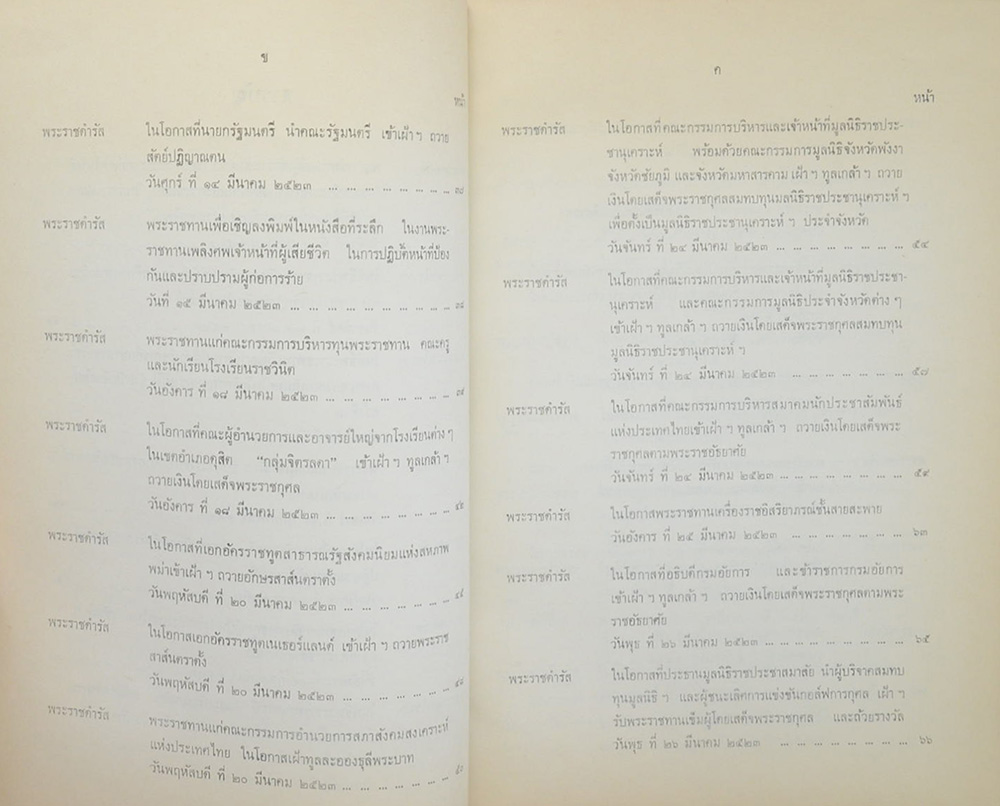 ข
หน้า
พระราชดำรัส ในโอกาสที่นายกรัฐมนตรี นำคณะรัฐมนตรี เข้าเฝ้า ฯ ถวาย
สัตย์ปฏิญาณตน
วันศุกร์ ที่ ๑๔ มีนาคม ๒๕๒๓ ... ... ... ... ... ... ...
พระราชดำรัส พระราชทานเพื่อเชิญลงพิมพ์ในหนังสือที่ระลึก ในงานพระ-
ราชทานเพลิงศพเจ้าหน้าที่ผู้เสียชีวิต ในการปฏิบัติหน้าที่ป้อง
กันและปราบปรามผู้ก่อการร้าย
วันที่ ๑๕ มีนาคม ๒๕๒๓ ... ... ... ... ... ... ... ... ...
พระราชดำรัส พระราชทานแก่คณะกรรมการบริหารทุนพระราชทาน คณะครู
และนักเรียนโรงเรียนราชวินิต
วันอังคาร ที่ ๑๘ มีนาคม ๒๕๒๓ ... ... ... ... ... ... ...
พระราชดำรัส ในโอกาสที่คณะผู้อำนวยการและอาจารย์ใหญ่จากโรงเรียนต่าง ๆ
ในเขตอำเภอดุสิต “กลุ่มจิตรลดา” เข้าเฝ้า ฯ ทูลเกล้า ฯ
ถวายเงินโดยเสด็จพระราชกุศล
วันอังคาร ที่ ๑๘ มีนาคม ๒๕๒๓ ... ... ... ... ... ... ...
พระราชดำรัส ในโอกาสที่เอกอัครราชทูตสาธารณรัฐสังคมนิยมแห่งสหภาพ
พม่าเข้าเฝ้า ฯ ถวายอักษรสาส์นตราตั้ง
วันพฤหัสบดี ที่ ๒๐ มีนาคม ๒๕๒๓ ... ... ... ... ... ...
พระราชดำรัส ในโอกาสเอกอัครราชทูตเนเธอร์แลนด์ เข้าเฝ้า ฯ ถวายพระราช
สาส์นตราตั้ง
วันพฤหัสบดี ที่ ๒๐ มีนาคม ๒๕๒๓ ... ... ... ... ... ...
พระราชดำรัส พระราชทานแก่คณะกรรมการอำนวยการสภาสังคมสงเคราะห์
แห่งประเทศไทย ในโอกาสเฝ้าทูลละอองธุลีพระบาท
วันพฤหัสบดี ที่ ๒๐ มีนาคม ๒๕๒๓ ... ... ... ... ... ...
ค
หน้า
พระราชดำรัส ในโอกาสที่คณะกรรมการบริหารและเจ้าหน้าที่มูลนิธิราชประ-
ชานุเคราะห์ พร้อมด้วยคณะกรรมการมูลนิธิจังหวัดพังงา
จังหวัดชัยภูมิ และจังหวัดมหาสารคาม เฝ้า ฯ ทูลเกล้า ฯ ถวาย
เงินโดยเสด็จพระราชกุศลสมทบทุนมูลนิธิราชประชานุเคราะห์ ฯ
เพื่อตั้งเป็นมูลนิธิราชประชานุเคราะห์ ฯ ประจำจังหวัด
วันจันทร์ ที่ ๒๔ มีนาคม ๒๕๒๓ ... ... ... ... ... ... ... ... ๕๔
พระราชดำรัส ในโอกาสที่คณะกรรมการบริหารและเจ้าหน้าที่มูลนิธิราชประชา-
นุเคราะห์ และคณะกรรมการมูลนิธิประจำจังหวัดต่าง ๆ
เข้าเฝ้า ฯ ทูลเกล้า ฯ ถวายเงินโดยเสด็จพระราชกุศลสมทบทุน
มูลนิธิราชประชานุเคราะห์ ฯ
วันจันทร์ ที่ ๒๔ มีนาคม ๒๕๒๓ ... ... ... ... ... ... ... ๕๗
พระราชดำรัส ในโอกาสที่คณะกรรมการบริหารสมาคมนักประชาสัมพันธ์
แห่งประเทศไทยเข้าเฝ้า ฯ ทูลเกล้า ฯ ถวายเงินโดยเสด็จพระ
ราชกุศลตามพระราชอัธยาศัย
วันจันทร์ ที่ ๒๔ มีนาคม ๒๕๒๓ ... ... ... ... ... ... ... ... ๕๙
พระราชดำรัส ในโอกาสพระราชทานเครื่องราชอิสริยาภรณ์ชั้นสายสะพาย
วันอังคาร ที่ ๒๕ มีนาคม ๒๕๒๓ ... ... ... ... ... ... ... ๖๓
พระราชดำรัส ในโอกาสที่อธิบดีกรมอัยการ และข้าราชการกรมอัยการ
เข้าเฝ้า ฯ ทูลเกล้า ฯ ถวายเงินโดยเสด็จพระราชกุศลตามพระ
ราชอัธยาศัย
วันพุธ ที่ ๒๖ มีนาคม ๒๕๒๓ ... ... ... ... ... ... ... ... ... ๖๕
พระราชดำรัส ในโอกาสที่ประธานมูลนิธิราชประชาสมาสัย นำผู้บริจาคสมทบ
ทุนมูลนิธิ ฯ และผู้ชนะเลิศการแข่งขันกอล์ฟการกุศล เฝ้า ฯ
รับพระราชทานเข็มผู้โดยเสด็จพระราชกุศล และถ้วยรางวัล
วันพุธ ที่ ๒๖ มีนาคม ๒๕๒๓ ... ... ... ... ... ... ... ... ๖๖